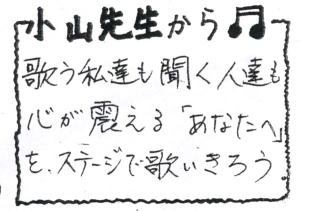 小山先生から♫
歌う私達も聞く人達も
心が震える「あなたへ」
を、ステージで歌いきろう